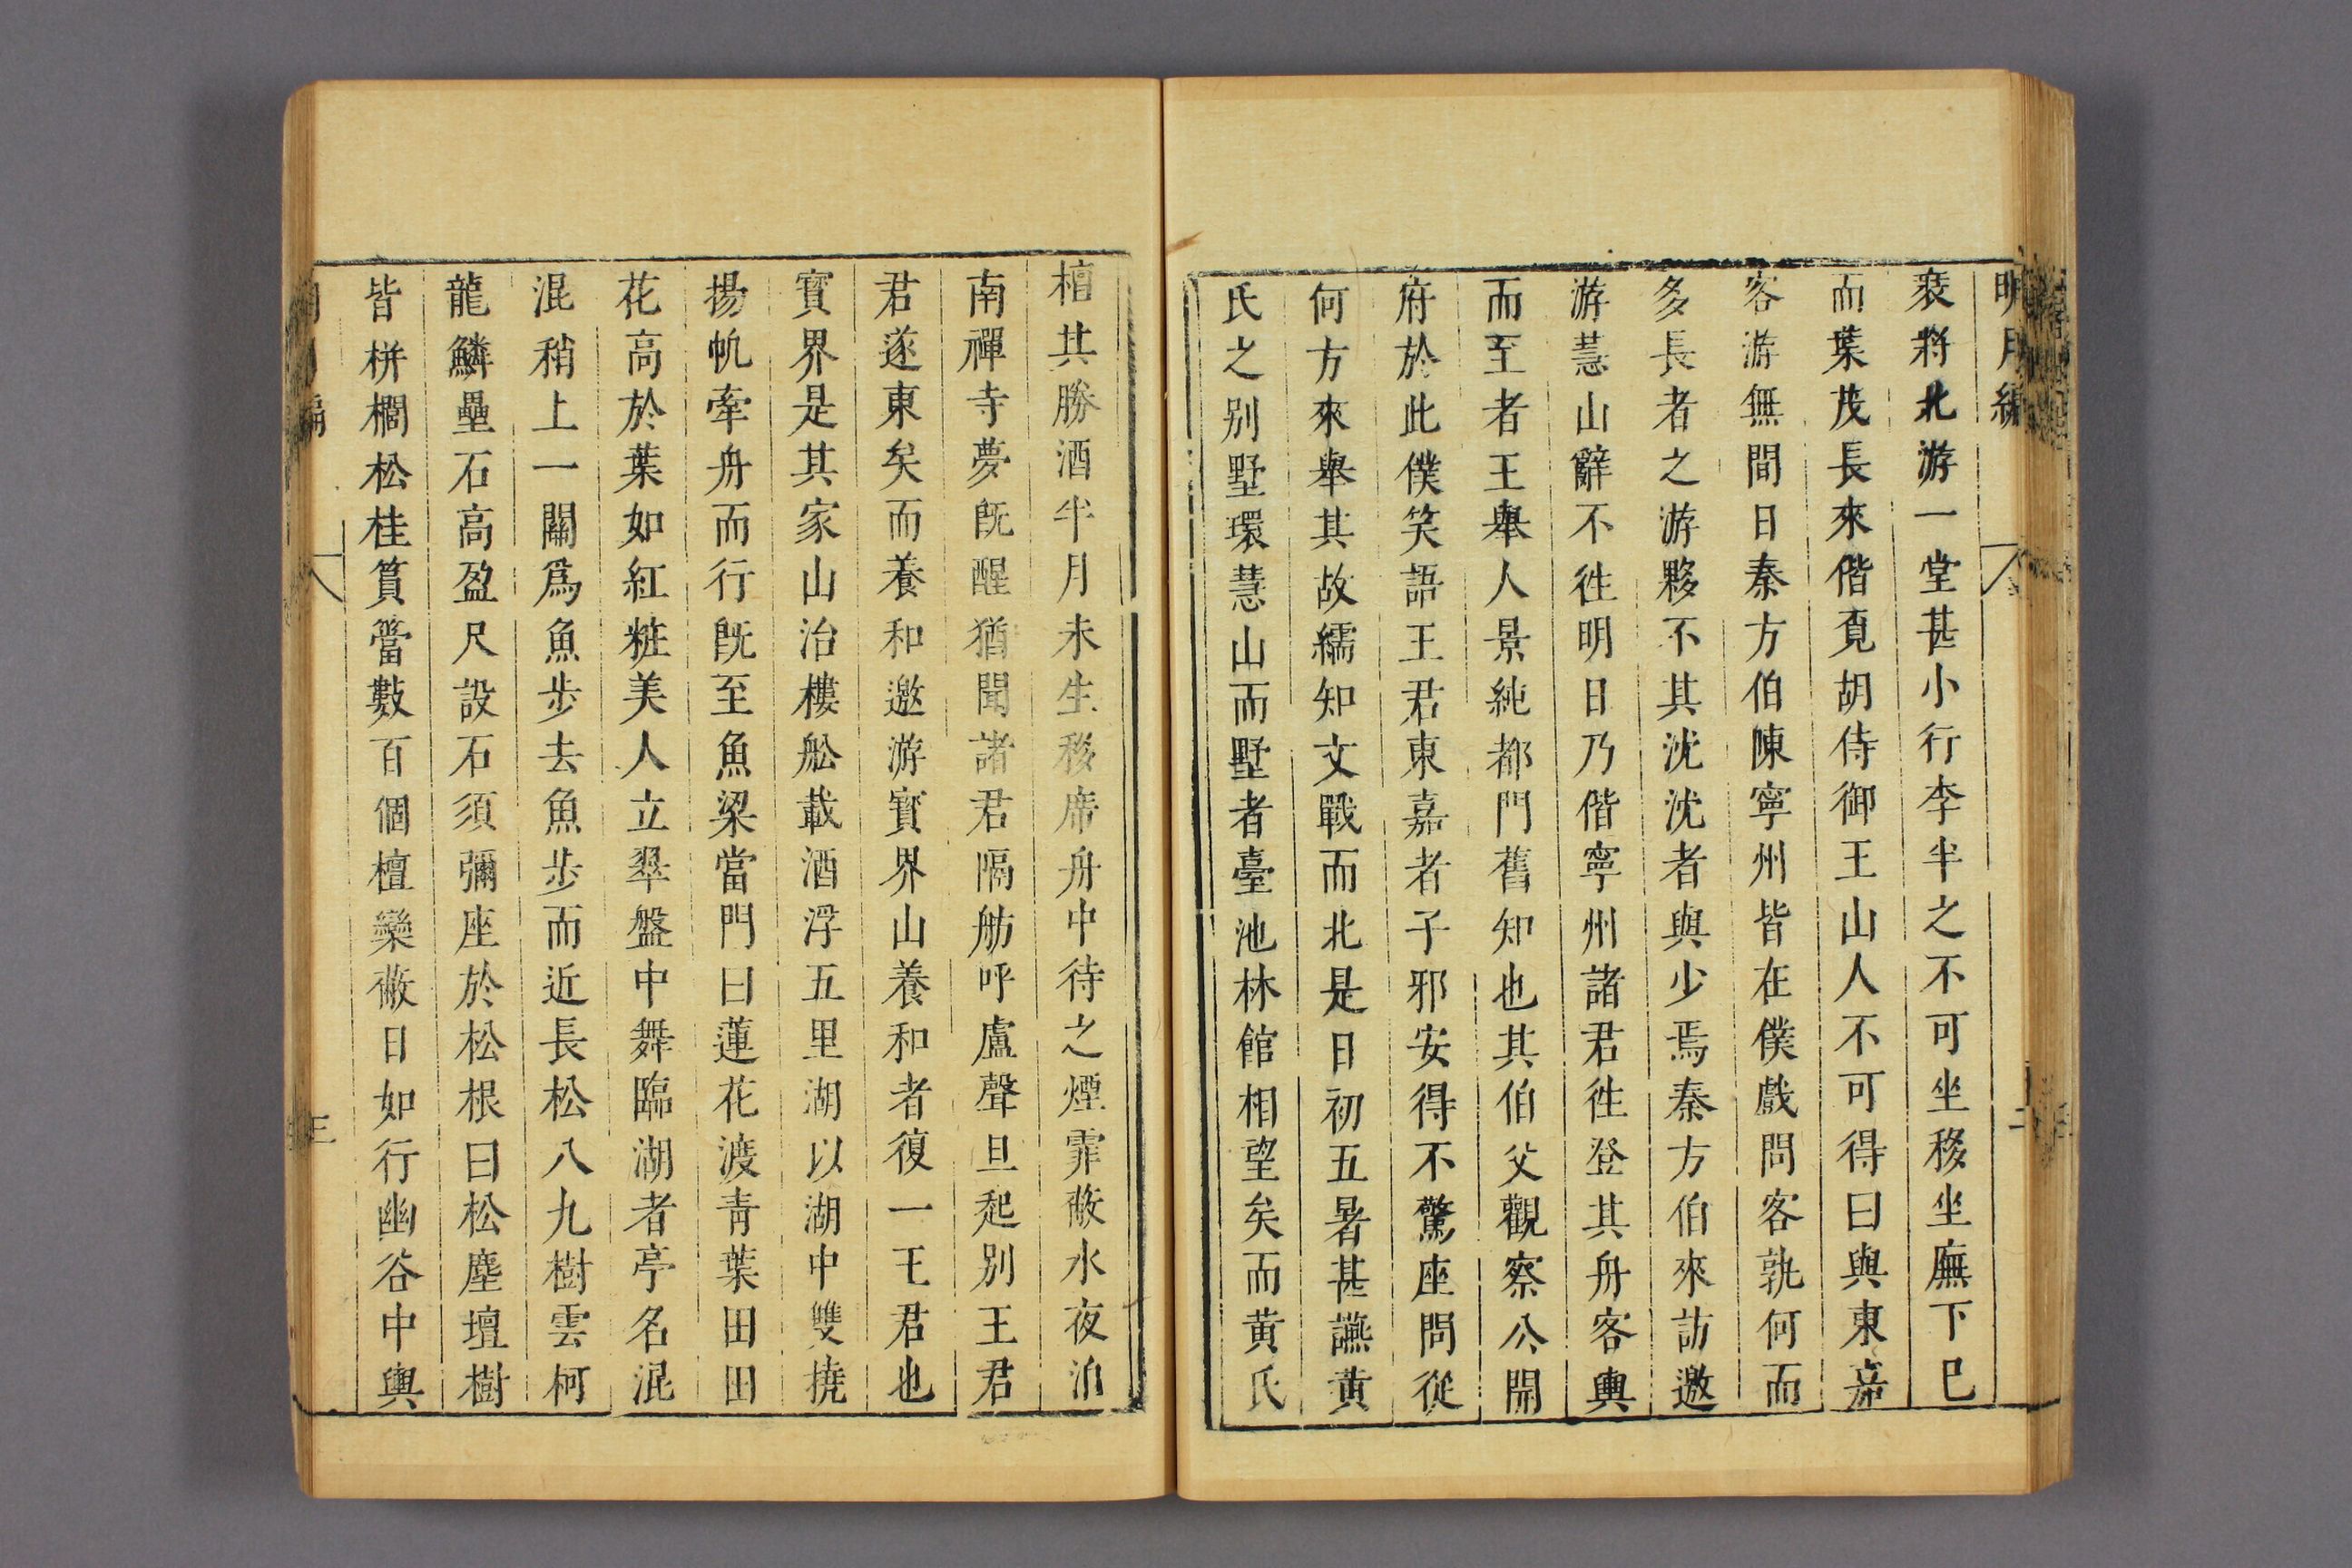 明月編
二
裘將北游一堂甚小行李半之不可坐移坐廡下已
而葉茂長來偕覓胡侍御王山人不可得曰與東嘉
客游無間日秦方伯陳寧州皆在僕戲問客孰何而
多長者之游夥不其沈沈者與少焉秦方伯來訪邀
游慧山辭不徃明日乃偕寧州諸君徃登其舟客輿
而至者王舉人景純都門舊知也其伯父觀察公開
府於此僕笑語王君東嘉者子邪安得不驚座問從
何方來舉其故繻知文戰而北是日初五暑甚讌黄
氏之别墅環慧山而墅者臺池林館相望矣而黄氏
檀其勝酒半月未生移席舟中待之煙霏蔽水夜泊
南禪寺夢旣醒猶聞諸君隔舫呼盧聲旦起别王君
君遂東矣而養和邀游寳界山養和者復一王君也
寳界是其家山治樓舩載酒浮五里湖以湖中雙撓
揚帆牽舟而行旣至魚梁當門曰蓮花渡青葉田田
花高於葉如紅粧美人立翠盤中舞臨湖者亭名混
混稍上一關爲魚步去魚步而近長松八九樹雲柯
龍鱗壘石高盈尺設石須彌座於松根曰松塵壇樹
皆栟櫚松桂篔簹數百個檀欒蔽日如行幽谷中輿
三